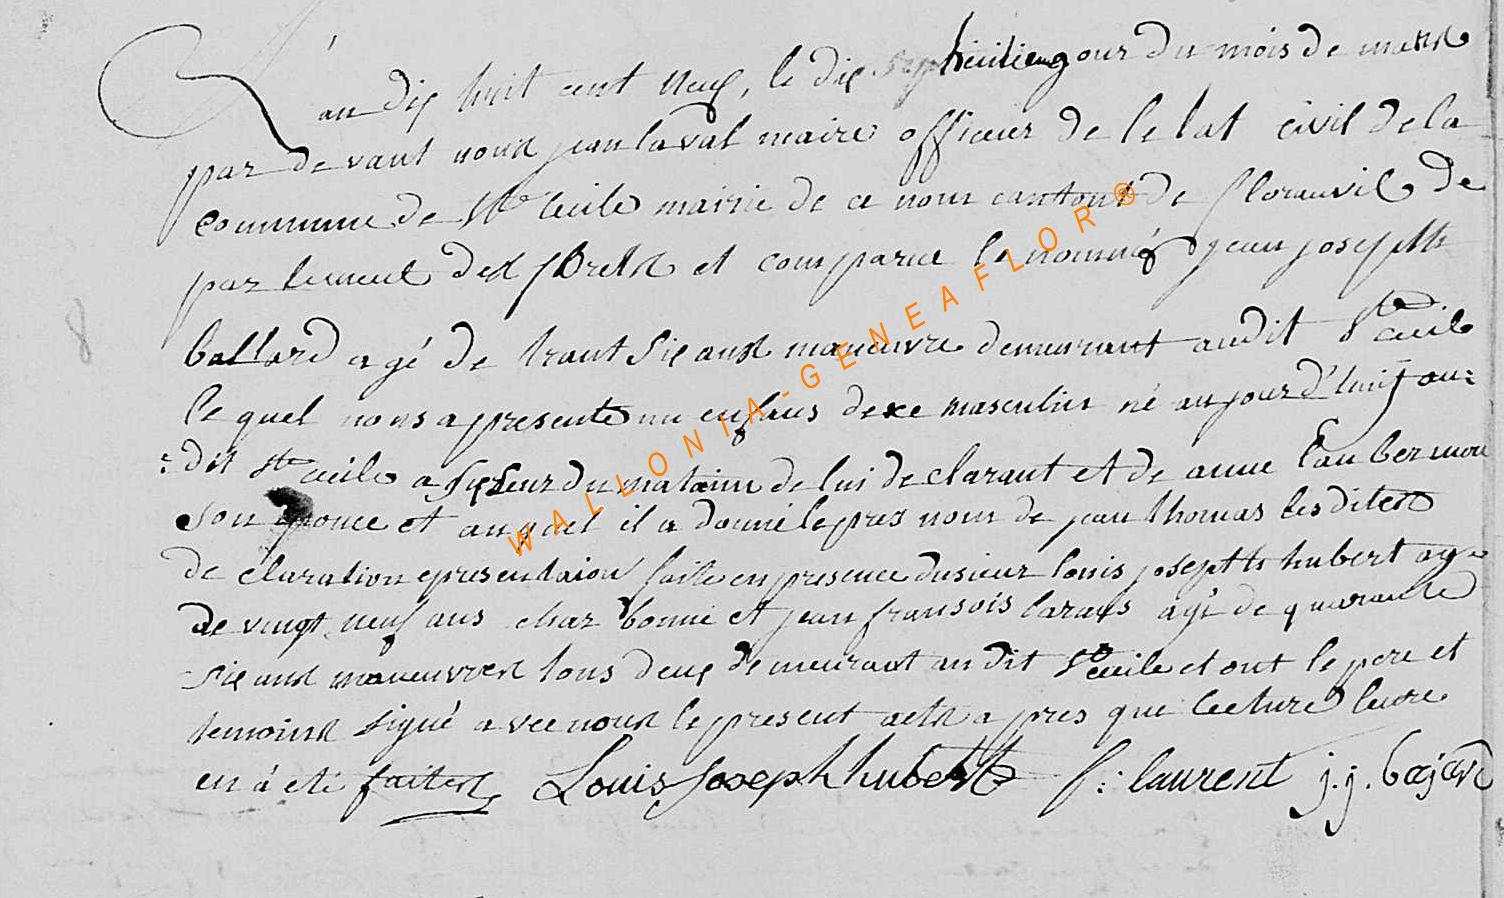 L'an dix huit cent neuf, le dix huitieme jour du mois de mars
par devant nous jean laval maire officier de letat civil de la
commune de Ste Cecile mairie de ce nom canton de florenville de
partement des forets et comparue le nommé jean joseph
ballard agé de trant six ans manœuvre demeurant audit Ste Cecile
le quel nous a presente un enfans de sexe masculin né aujourd'huij au=
=dit Ste Cecile a six heur du matain de lui declarant et de anne
son epouse et auquel il a donné le pres nom de jean thomas lesdites
declaration epresentaion faite en presence du sieur louis joseph hubert age
de vingt neuf ans charbonnie et jean fransois agé de quarante
six ans manœuvres tous deux demeurant audit Ste Cecile et ont le pere et
temoins signé avec nous le present acte apres que lecture leure
en á eté faites Louis Joseph hubert f: laurent j.j. bajard
8
WALLONIA-GENEAFLOR ®